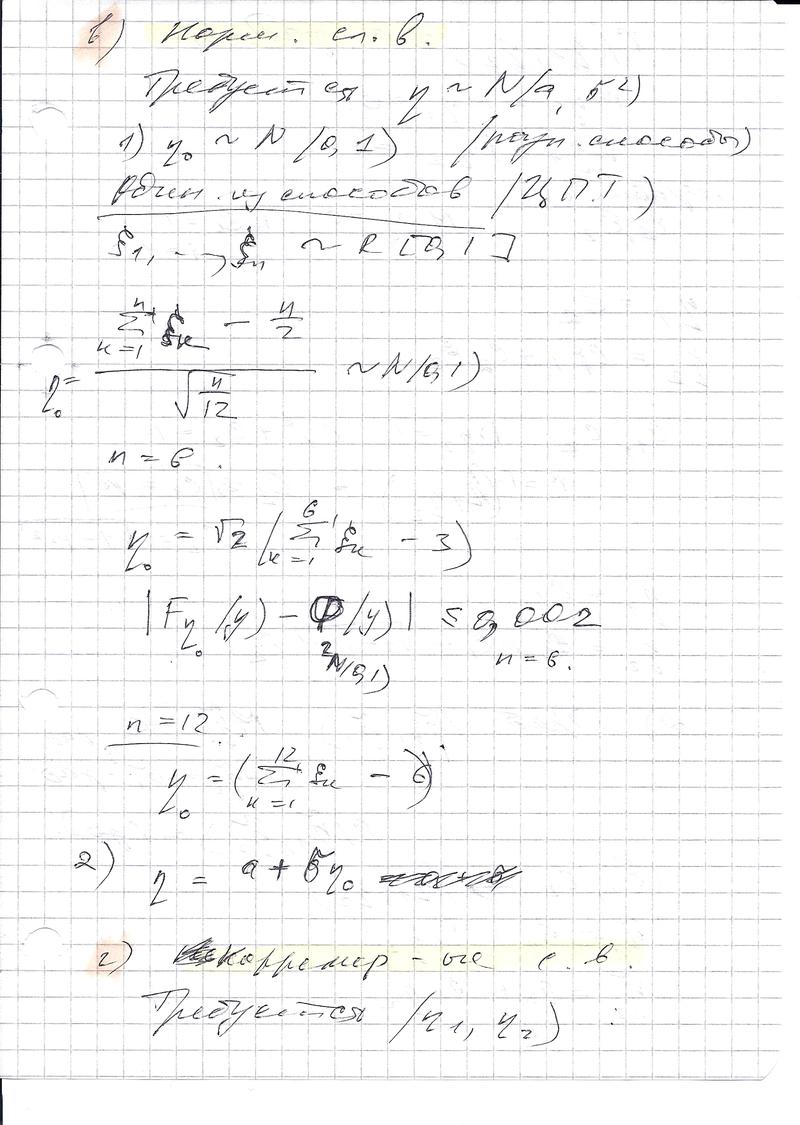 в) Норм. сл. в.
Требуется η ~ N(a, σ²)
1) η₀ ~ N(0, 1) (разл. способы)
Один из способов (ЦПТ)
ξ₁, ..., ξₙ ~ R[0, 1]
η₀ = (∑ₖ₌₁ⁿ ξₖ − n/2) / √(n/12) ~ N(0, 1)
n = 6.
η₀ = √2 (∑ₖ₌₁⁶ ξₖ − 3)
|F_η₀(y) − Φ(y)| ≤ 0,002
N(0,1) n = 6.
n = 12.
η₀ = (∑ₖ₌₁¹² ξₖ − 6)
2) η = a + ση₀
г) Коррелир-ые с. в.
Требуется (η₁, η₂) :